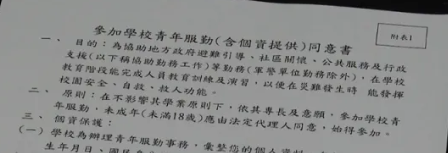 附表1
參加學校青年服勤(含個資提供)同意書
一、目的:為協助地方政府避難引導、社區關懷、公共服務及行政
支援(以下稱協助勤務工作)等勤務(軍警單位勤務除外),在學校
教育階段能完成人員教育訓練及演習,以便在災難發生時 能發揮
校園安全、自救、救人功能。
二、原則:在不影響其學業原則下,依其專長及意願,參加學校青
年服勤,未成年(未滿18歲)應由法定代理人同意,始得參加。
三、個資保護:
(一)學校為辦理青年服勤事務,彙整您的個人資料
生年月日、國民